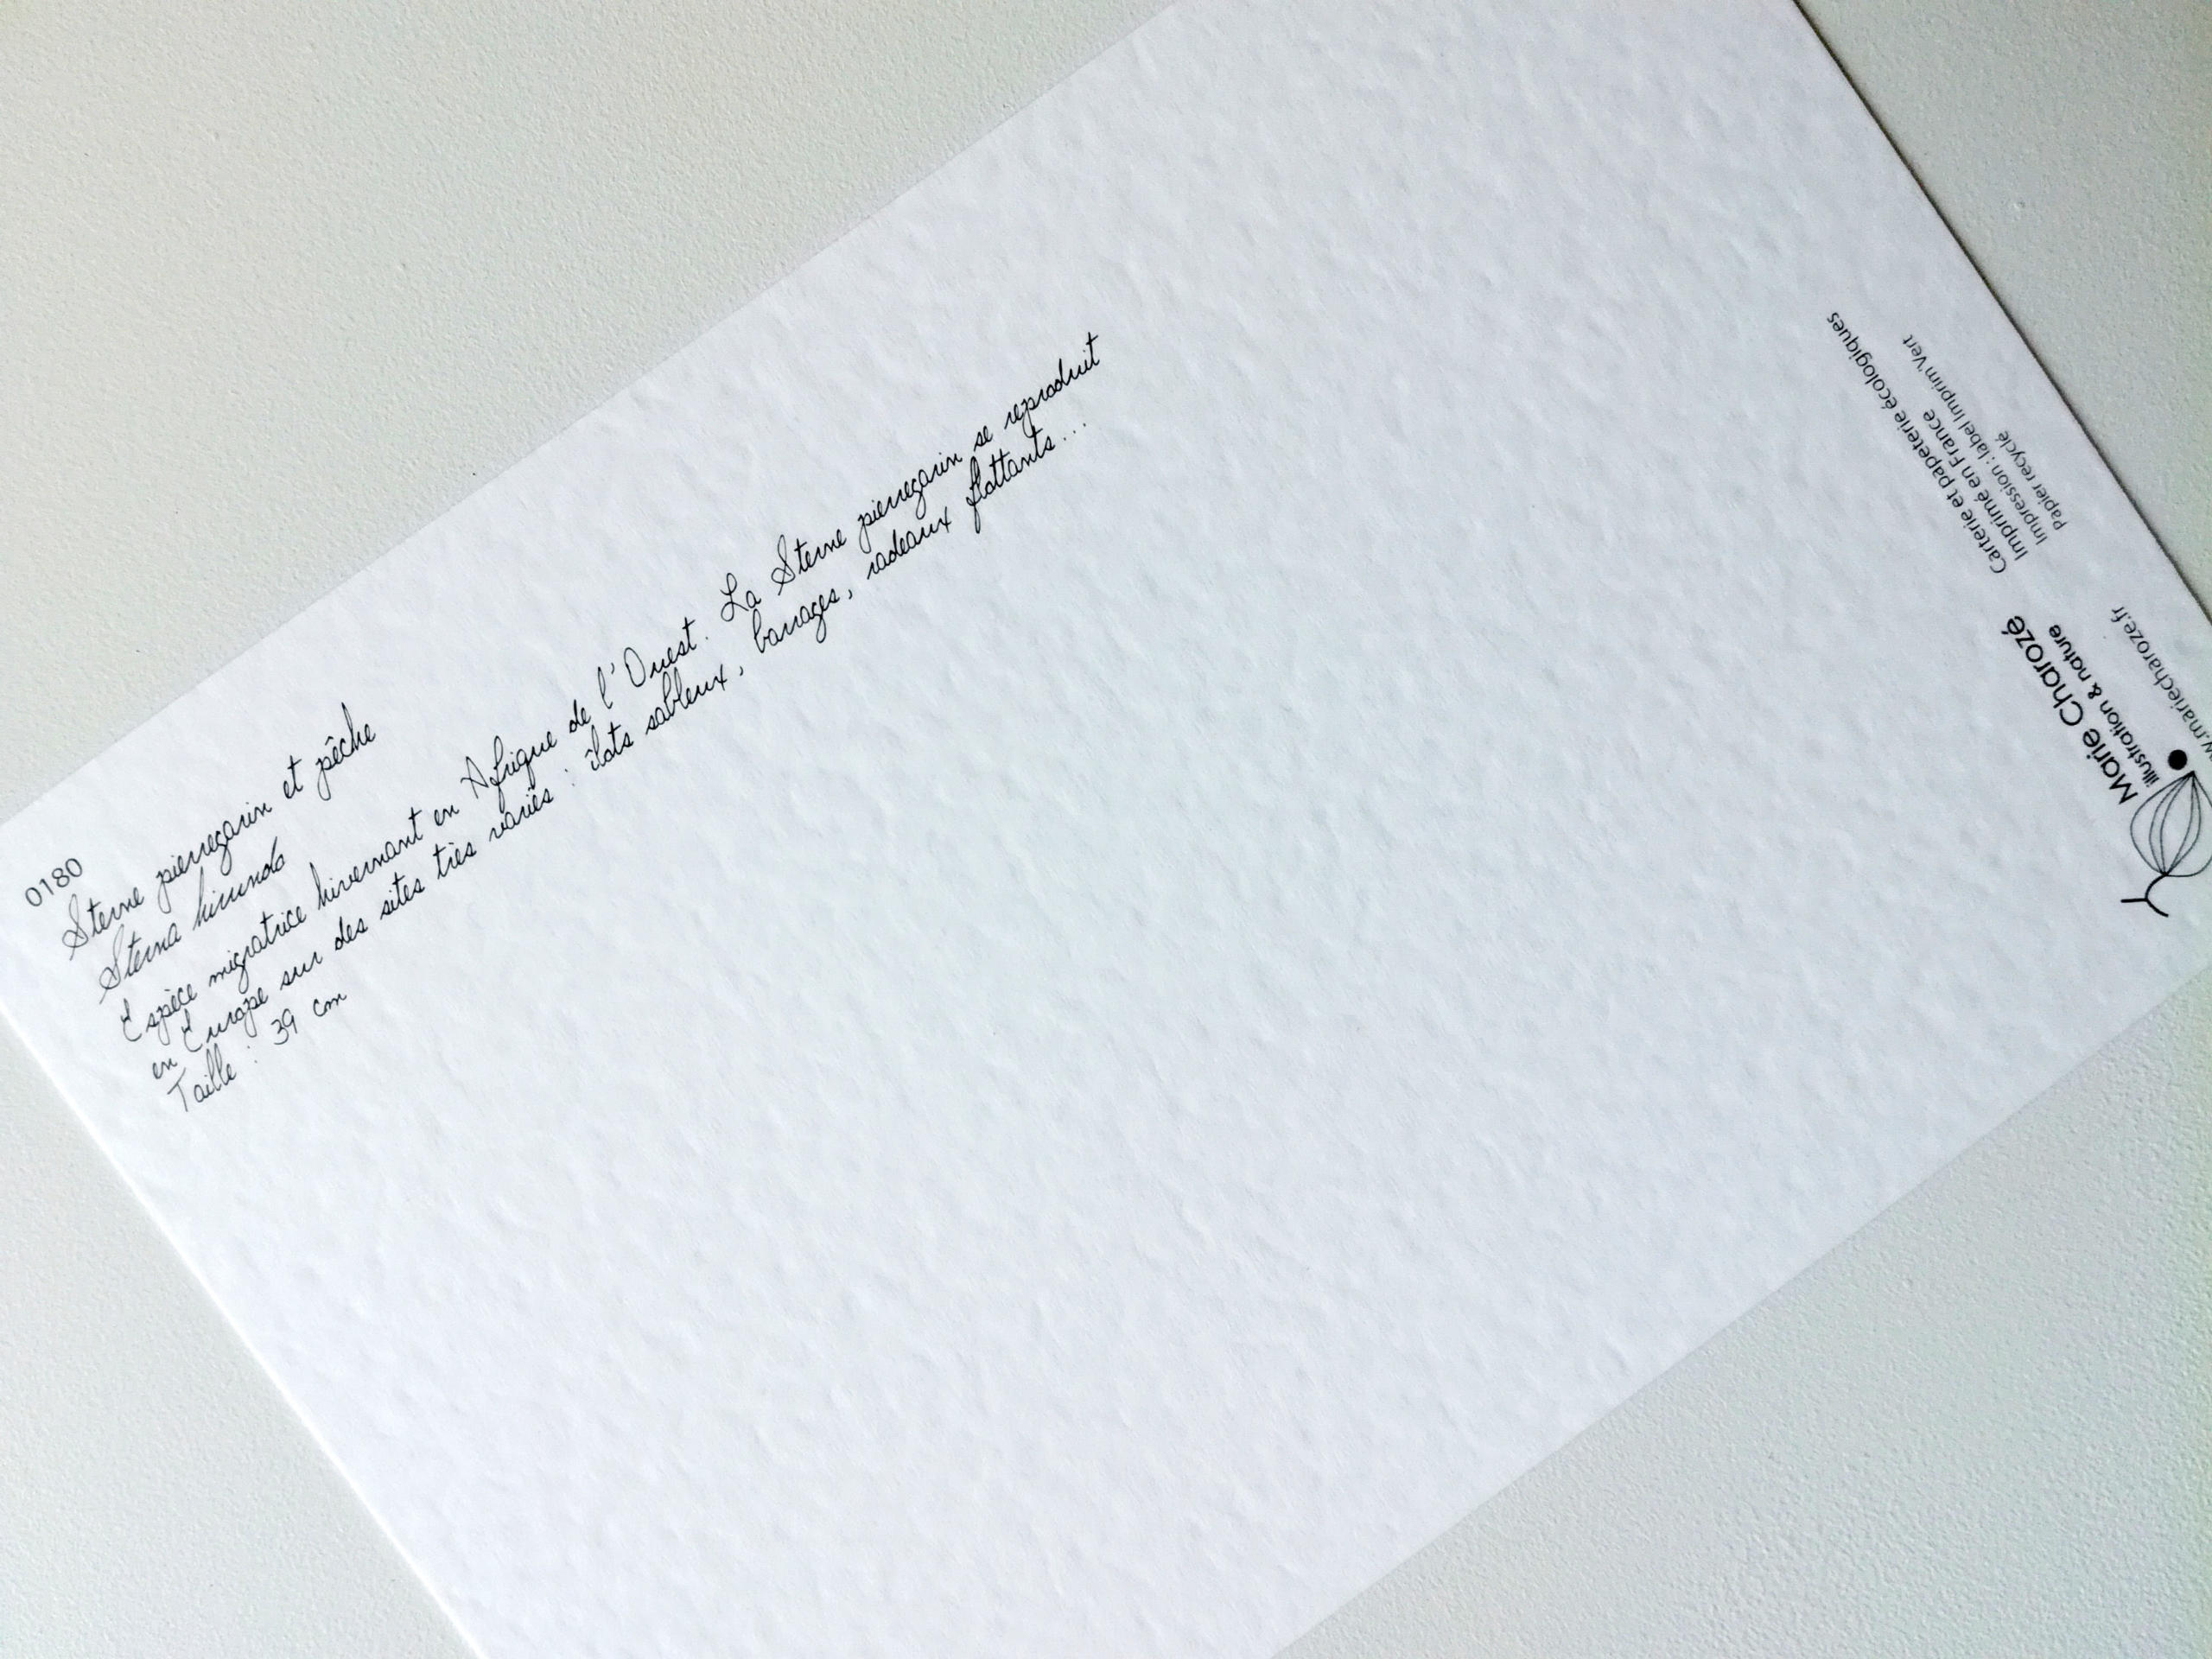 0180
Sterne pierregarin et pêche
Sterna hirundo
Espèce migratrice hivernant en Afrique de l'Ouest. La Sterne pierregarin se reproduit
en Europe sur des sites très variés : îlots sableux, barrages, radeaux flottants...
Taille : 39 cm
Marie Charozé
illustration & nature
w.mariecharoze.fr
Carterie et papeterie écologiques
Imprimé en France
Impression : label Imprim'Vert
Papier recyclé